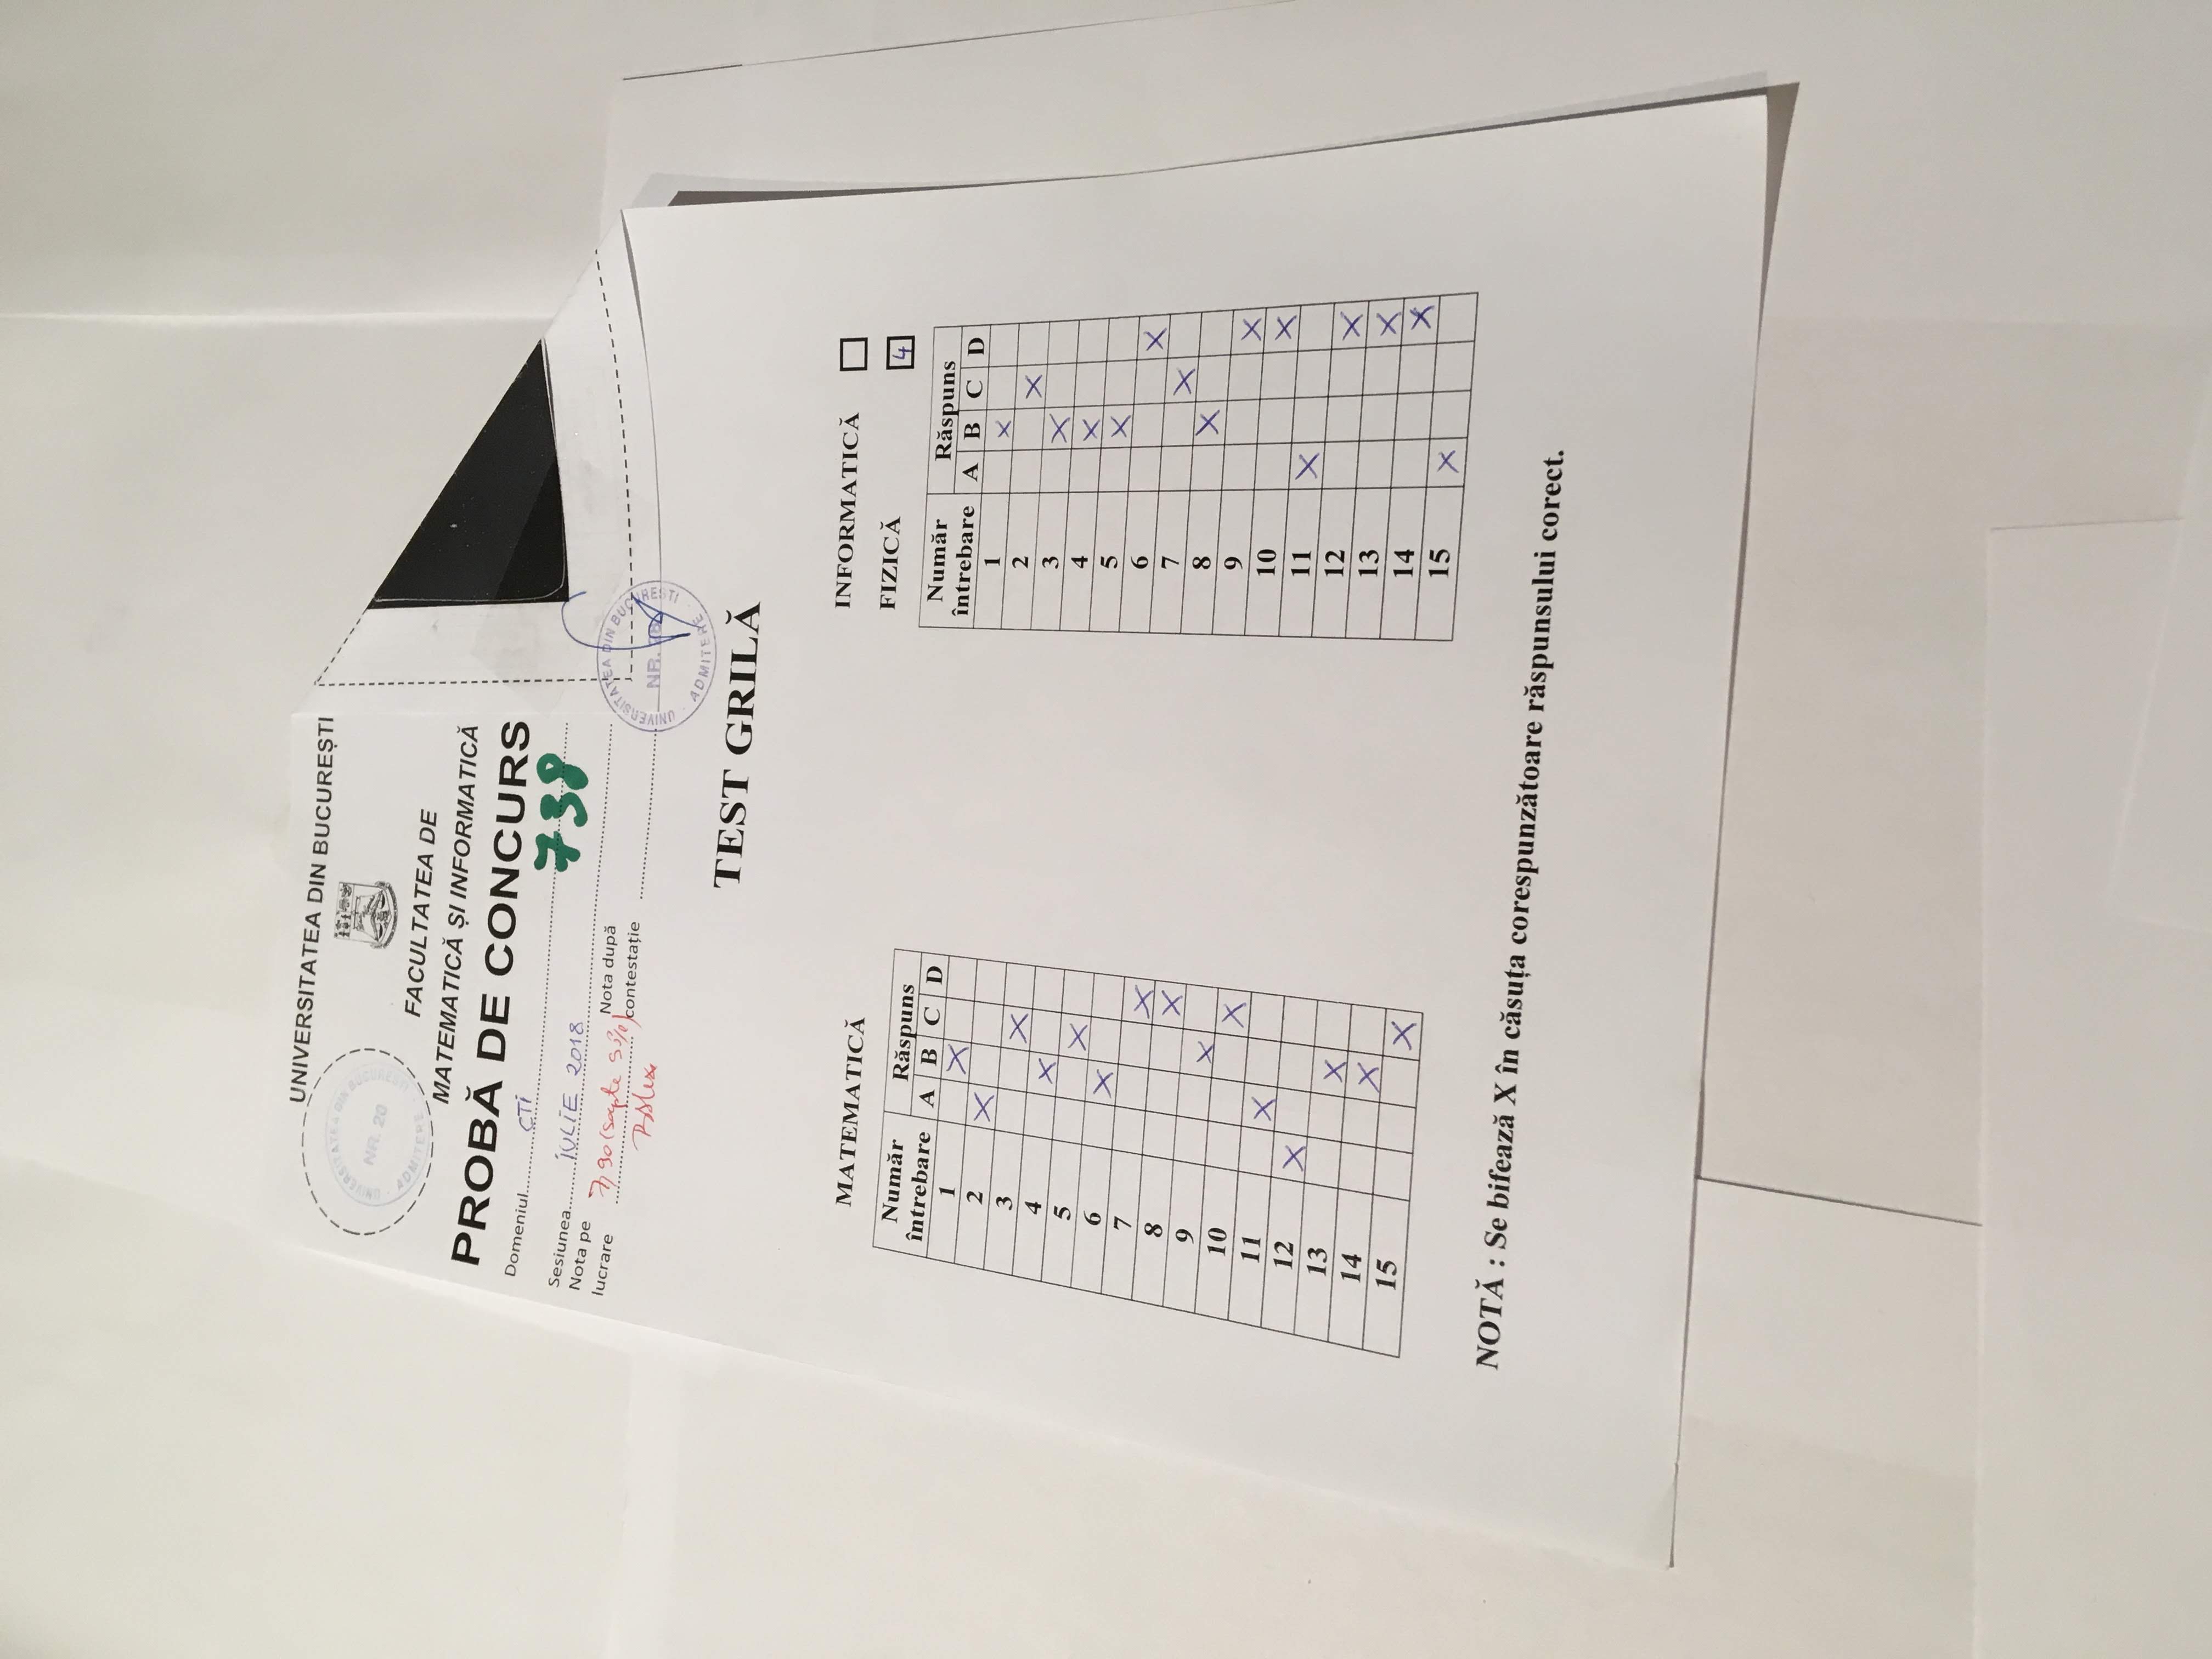 UNIVERSITATEA DIN BUCUREȘTI
UNIVERSITATEA DIN BUCUREȘTI
NR. 20
ADMITERE
FACULTATEA DE
MATEMATICĂ ȘI INFORMATICĂ
PROBĂ DE CONCURS
Domeniul CTI
738
Sesiunea IULIE 2018
Nota pe lucrare 7,90 (sapte
Nota după contestație
UNIVERSITATEA DIN BUCUREȘTI
NR.
ADMITERE
TEST GRILĂ
MATEMATICĂ
Număr întrebare Răspuns
A B C D
1 X
2 X
3 X
4 X
5 X
6 X
7 X
8 X
9 X
10 X
11 X
12 X
13 X
14 X
15 X
INFORMATICĂ
FIZICĂ 4
Număr întrebare Răspuns
A B C D
1 X
2 X
3 X
4 X
5 X
6 X
7 X
8 X
9 X
10 X
11 X
12 X
13 X
14 X
15 X
NOTĂ : Se bifează X în căsuța corespunzătoare răspunsului corect.